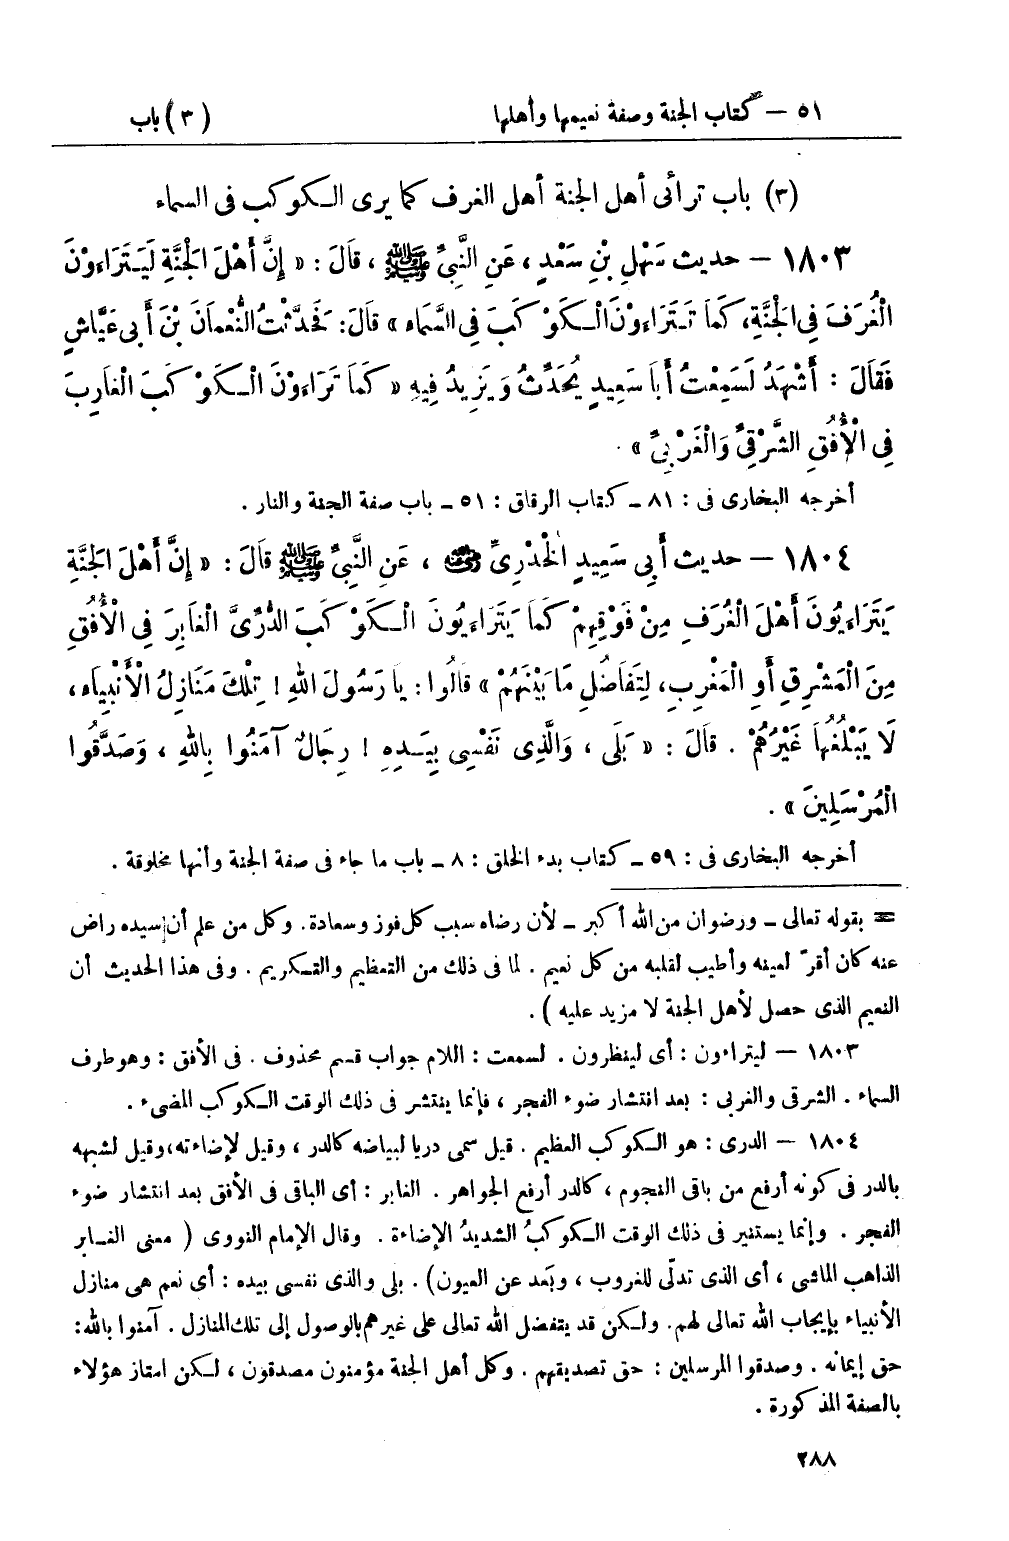 ٥١ – كتاب الجنة وصفة نعيمها وأهلها (٣) باب
(٣) باب ترائى أهل الجنة أهل الغرف كما يرى الكوكب فى السماء
١٨٠٣ – حديث سَهْلِ بْنِ سَعْدٍ ، عَنِ النَّبِيِّ ﷺ ، قَالَ : « إِنَّ أَهْلَ الْجَنَّةِ لَيَتَرَاءَوْنَ
الْغُرَفَ فِي الْجَنَّةِ، كَمَا تَتَرَاءَوْنَ الْكَوْكَبَ فِي السَّمَاءِ » قَالَ: فَحَدَّثْتُ النُّعْمَانَ بْنَ أَبِي عَيَّاشٍ
فَقَالَ : أَشْهَدُ لَسَمِعْتُ أَبَا سَعِيدٍ يُحَدِّثُ وَيَزِيدُ فِيهِ « كَمَا تَرَاءَوْنَ الْكَوْكَبَ الْغَارِبَ
فِي الْأُفُقِ الشَّرْقِيِّ وَالْغَرْبِيِّ » .
أخرجه البخارى فى : ٨١ – كتاب الرقاق : ٥١ – باب صفة الجنة والنار .
١٨٠٤ – حديث أَبِي سَعِيدٍ الْخُدْرِيِّ رضي الله عنه ، عَنِ النَّبِيِّ ﷺ قَالَ : « إِنَّ أَهْلَ الْجَنَّةِ
يَتَرَاءَيُونَ أَهْلَ الْغُرَفِ مِنْ فَوْقِهِمْ كَمَا يَتَرَاءَيُونَ الْكَوْكَبَ الدُّرِّيَّ الْغَابِرَ فِي الْأُفُقِ
مِنَ الْمَشْرِقِ أَوِ الْمَغْرِبِ، لِتَفَاضُلِ مَا بَيْنَهُمْ » قَالُوا : يَا رَسُولَ اللهِ ! تِلْكَ مَنَازِلُ الْأَنْبِيَاءِ،
لَا يَبْلُغُهَا غَيْرُهُمْ . قَالَ : « بَلَى ، وَالَّذِى نَفْسِي بِيَدِهِ ! رِجَالٌ آمَنُوا بِاللهِ ، وَصَدَّقُوا
الْمُرْسَلِينَ » .
أخرجه البخارى فى : ٥٩ – كتاب بدء الخلق : ٨ – باب ما جاء فى صفة الجنة وأنها مخلوقة .
= بقوله تعالى – ورضوان من الله أكبر – لأن رضاه سبب كل فوز وسعادة. وكل من علم أن سيده راض
عنه كان أقرّ لعينه وأطيب لقلبه من كل نعيم . لما فى ذلك من التعظيم والتكريم . وفى هذا الحديث أن
النعيم الذى حصل لأهل الجنة لا مزيد عليه ) .
١٨٠٣ – ليتراءون : أى لينظرون . لسمعت : اللام جواب قسم محذوف . فى الأفق : وهو طرف
السماء . الشرقى والغربى : بعد انتشار ضوء الفجر ، فإنما ينتشر فى ذلك الوقت الكوكب المضىء .
١٨٠٤ – الدرى : هو الكوكب العظيم . قيل سمى دريا لبياضه كالدر ، وقيل لإضاءته، وقيل لشبهه
بالدر فى كونه أرفع من باقى النجوم ، كالدر أرفع الجواهر . الغابر : أى الباقى فى الأفق بعد انتشار ضوء
الفجر . وإنما يستنير فى ذلك الوقت الكوكبُ الشديدُ الإضاءة . وقال الإمام النووى ( معنى الغابر
الذاهب الماشى ، أى الذى تدلّى للغروب ، وبَعد عن العيون) . بلى والذى نفسى بيده : أى نعم هى منازل
الأنبياء بإيجاب الله تعالى لهم. ولكن قد يتفضل الله تعالى على غيرهم بالوصول إلى تلك المنازل . آمنوا بالله:
حق إيمانه . وصدقوا المرسلين : حق تصديقهم . وكل أهل الجنة مؤمنون مصدقون ، لكن امتاز هؤلاء
بالصفة المذكورة .
٢٨٨